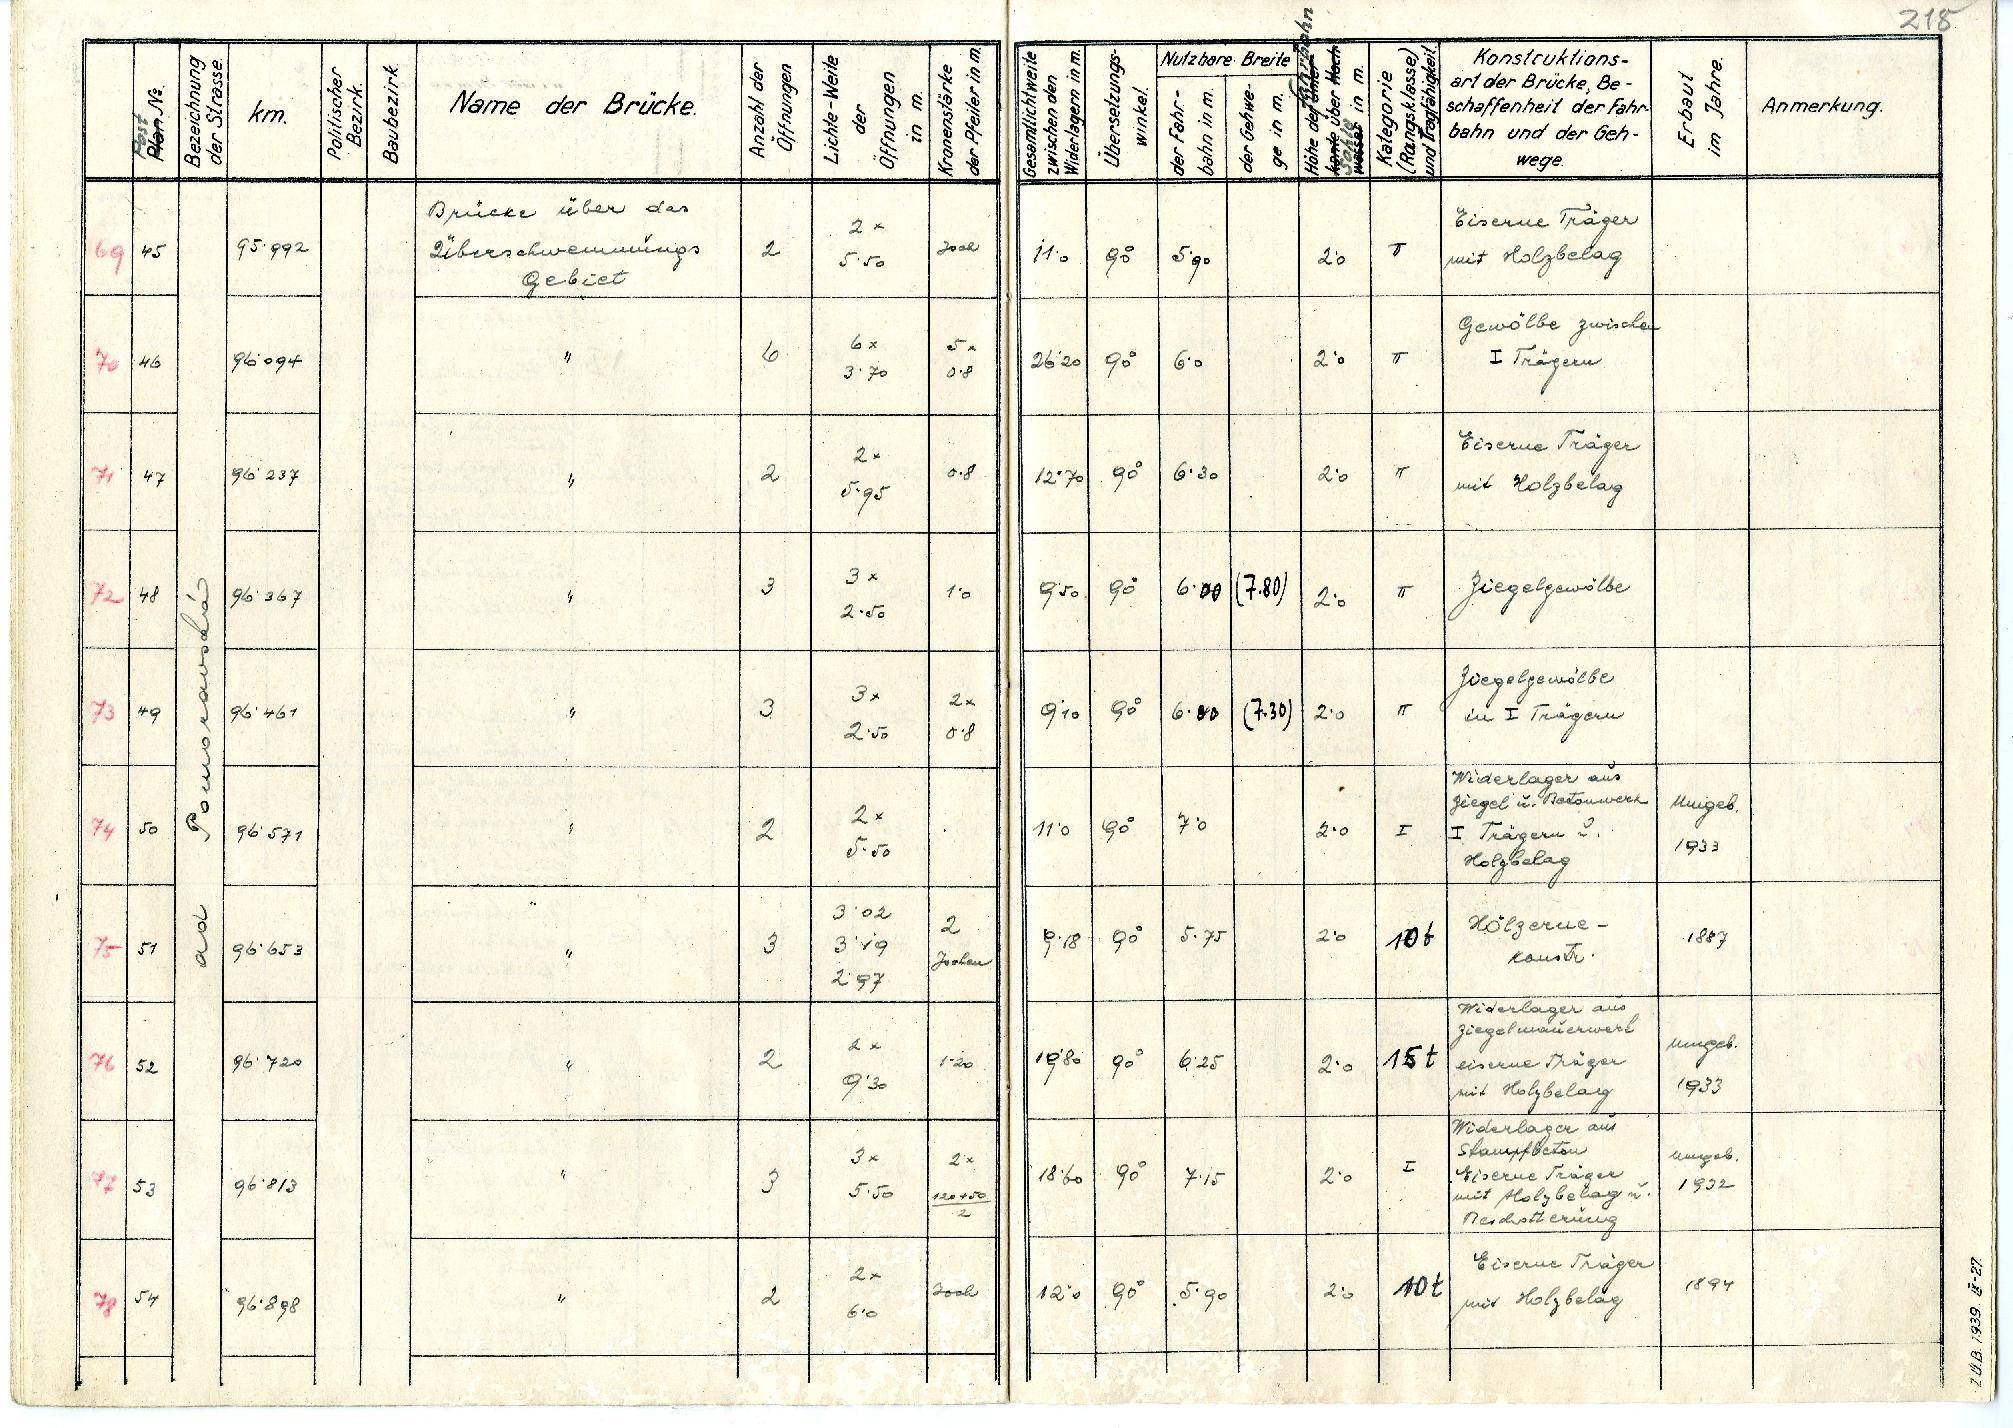 218
Post
Plan No.
Bezeichnung der Strasse.
km.
Politischer Bezirk.
Baubezirk
Name der Brücke.
Anzahl der Öffnungen
Lichte-Weite der Öffnungen in m.
Kronenstärke der Pfeiler in m.
Gesamtlichtweite zwischen den Widerlagern in m.
Übersetzungs-winkel.
Nutzbare Breite
der Fahr-bahn in m.
der Gehwe-ge in m.
Fahrbahn
Sohle
Kategorie (Rangsklasse) und Tragfähigkeit.
Konstruktions-
art der Brücke, Be-
schaffenheit der Fahr-
bahn und der Geh-
wege.
Erbaut im Jahre.
Anmerkung.
ad Pomoravská
69 45 95·992 Brücke über das Überschwemmungs Gebiet 2 2× 5·50 Joch 11·0 90° 5·90 2·0 II Eiserne Träger mit Holzbelag
70 46 96·094 " 6 6× 3·70 5× 0·8 26·20 90° 6·0 2·0 II Gewölbe zwischen I Trägern
71 47 96·237 " 2 2× 5·95 0·8 12·70 90° 6·30 2·0 II Eiserne Träger mit Holzbelag
72 48 96·367 " 3 3× 2·50 1·0 9·50 90° 6·00 (7.80) 2·0 II Ziegelgewölbe
73 49 96·461 " 3 3× 2·50 2× 0·8 9·10 90° 6·00 (7.30) 2·0 II Ziegelgewölbe in I Trägern
74 50 96·571 " 2 2× 5·50 11·0 90° 7·0 2·0 I Widerlager aus Ziegel u. Betonwerk I Trägern u. Holzbelag Umgeb. 1933
75 51 96·653 " 3 3·02 3·19 2·97 2 Jochen 9·18 90° 5·75 2·0 10t Hölzerne-konstr. 1887
76 52 96·720 " 2 2× 9·30 1·20 19·80 90° 6·25 2·0 15t Widerlager aus Ziegelmauerwerk eiserne Träger mit Holzbelag Umgeb. 1933
77 53 96·813 " 3 3× 5·50 2× 120+50/2 18·60 90° 7·15 2·0 I Widerlager aus Stampfbeton Eiserne Träger mit Holzbelag u. Umgeb. 1932
78 54 96·898 " 2 2× 6·0 Joch 12·0 90° 5·90 2·0 10t Eiserne Träger mit Holzbelag 1894